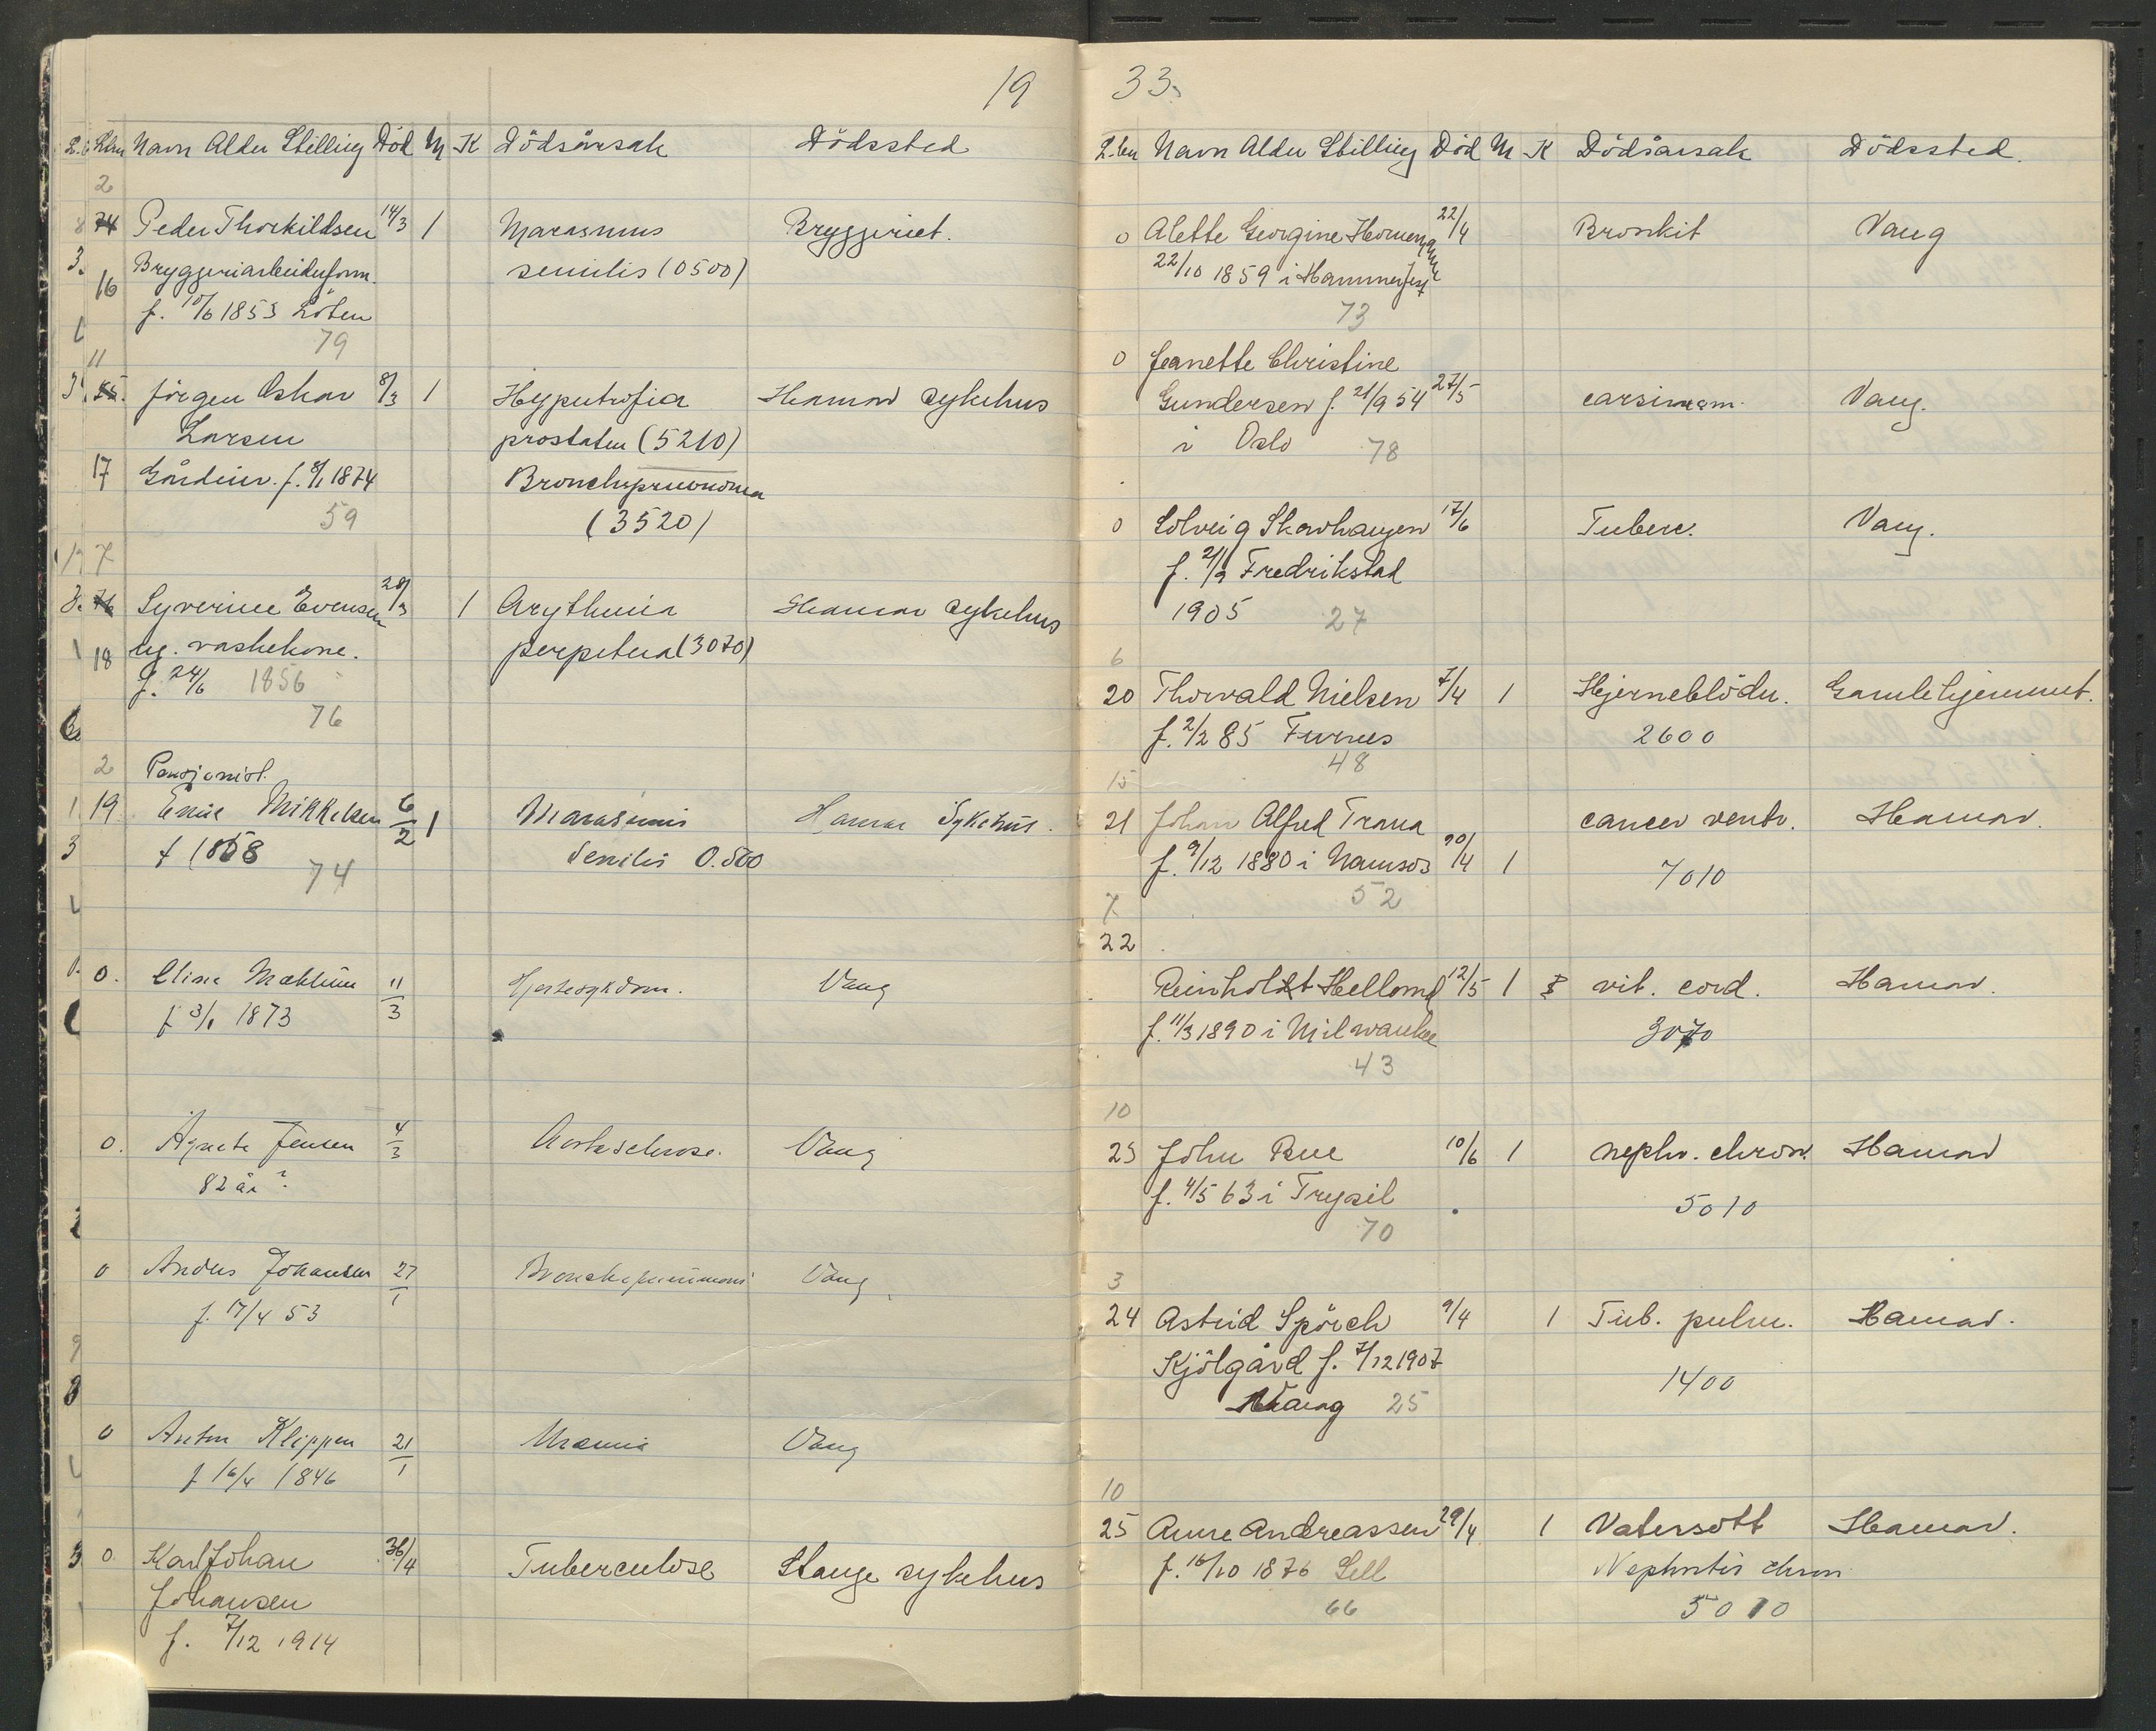 19
L.n Navn Alder Stilling Död M K Dödsårsak Dödssted
2
74 Peder Thorkildsen 14/3 1 Marasmus Bryggeriet.
3. Bryggeriarbeiderform. senilis (0500)
16
f. 10/6 1853 Löten
79
11
Jörgen Oskar 8/3 1 Hypertrofia Hamar sykehus
Larsen prostaten (5210)
17 Gårdeier. f. 8/1 1874 Bronchopneumonia
59 (3520)
7
76 Syverine Evensen 28/3 1 Arythmia Hamar sykehus
18 ug. vaskekone. perpetua (3070)
f. 24/6 1856
76
2 Pensjonist.
19 Emil Mikkelsen 6/2 1 Marasmus Hamar Sykehus.
f 1858 Senilis 0.500
74
0. Elise Mæhlum 11/3 Hjertesykdom. Vang
f 3/1 1873
0. Agnete Jensen 4/3 Arteriosclerose. Vang
82 år ?
0 Anders Johansen 27/1 Bronchopneumoni Vang
f. 17/4 53
0 Anton Klippen 21/1 Uræmia Vang
f 16/4 1846
0. Karl Johan 30/4 Tuberculose Stange sykehus
Johansen
f. 7/12 1914
33.
L.ben Navn Alder Stilling Död M K Dödsårsak Dödssted.
0 Alette Georgine 22/4 Bronkit Vang
22/10 1859 i Hammerfest
73
0 Jeanette Christine
Gundersen f. 21/9 54 27/5 carsinom. Vang.
i Oslo 78
0 Solveig Skavhaugen 17/6 Tuberc. Vang.
f. 2/9 Fredrikstad
1905 27
6
20 Thorvald Nielsen 7/4 1 Hjerneblödn. Gamlehjemmet.
f. 2/2 85 Furnes 2600
48
15
21 Johan Alfred Trana cancer ventr. Hamar.
f. 9/12 1880 i Namsos 20/4 1 7010
52
7
22
Reinholdt Hellomd 12/5 1 vit. cord. Hamar.
f. 11/3 1890 i Milwaukee 3070
43
10
23 John Rue 10/6 1 nephr. chron. Hamar
f. 4/5 63 i Trysil 5010
70
3
24 Astrid Spörch 9/4 1 Tub. pulm. Hamar.
Kjölgård f. 7/12 1907 1400
Vang 25
10
25 Anne Andreassen 29/4 1 Vatersott Hamar.
f. 16/10 1876 Sell Nephritis chron
66 5010